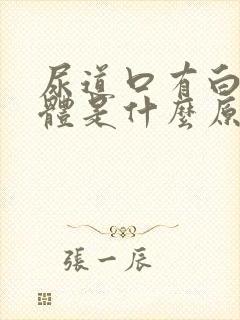 尿道口有白
體是什麼原
張一辰